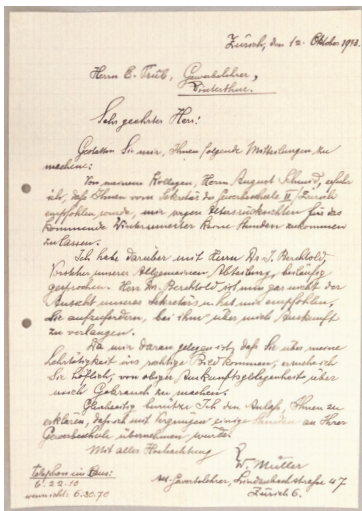 Zürich, den 12. Oktober
Herrn E. Trüb, Gewerbelehrer,
Winterthur.
Sehr geehrter Herr!
Gestatten Sie mir, Ihnen folgende Mitteilungen zu
machen:
Von meinem Kollegen, Herrn August Schmid, erfuhr
ich, daß Ihnen vom Sekretär der Gewerbeschule Zürich
empfohlen wurde, mir wegen für das
kommende Wintersemester keine Stunden zukommen
zu lassen.
Ich habe darüber mit Herrn Dr. J. Berchtold,
Vorsteher unserer Allgemeinen Abteilung,
gesprochen. Herr Dr. Berchtold ist nun gar nicht der
Ansicht unseres Sekretärs u. hat mir empfohlen,
Sie aufzufordern, bei ihm über mich Auskunft
zu verlangen.
Da mir daran gelegen ist, daß Sie über meine
Lehrtätigkeit ins richtige Bild kommen, ersuche ich
Sie höflich, von obiger Auskunftsgelegenheit über
mich Gebrauch zu machen.
Gleichzeitig benütze ich den Anlaß, Ihnen zu
erklären, daß ich mit Vergnügen einige Stunden an Ihrer
Gewerbeschule übernehmen würde.
Mit aller Hochachtung
W. Müller
Gewerbelehrer, 47
Zürich 6.
Telephon im Haus:
6.22.10
6.30.70